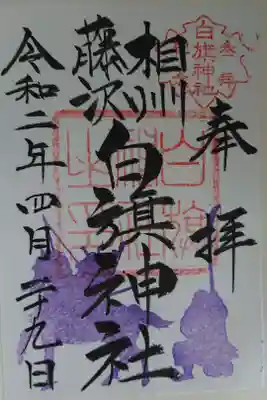 奉拝
白旗神社
相州
藤沢
白旗神社
令和二年四月二十九日